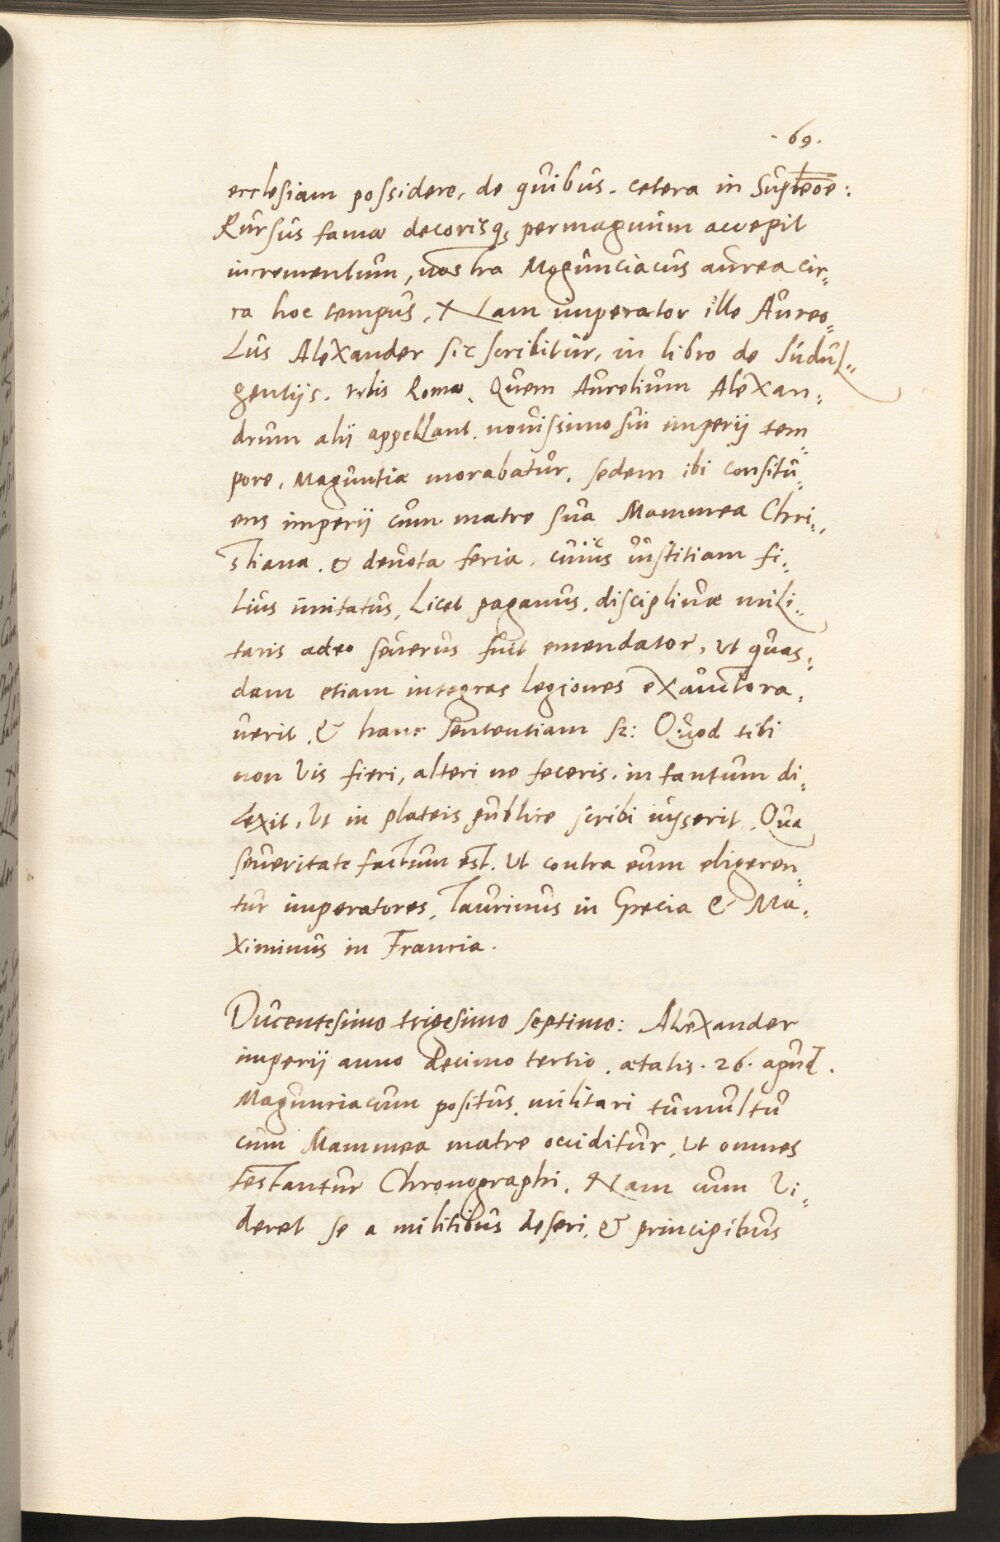 . 69 .
ecclesiam possidere, de quibus. cetera in
Rursus famae decorisq; permagnum accepit
incrementum, nostra Mogunciacus aurea cir-
ca hoc tempus. Nam imperator ille Aureo-
lus Alexander sic scribitur, in libro de Indul-
gentijs. urbis Romae. Quem Aurelium Alexan-
drum alij appellant. nouissimo sui imperij tem-
pore, Maguntiae morabatur, sedem ibi constitu-
ens imperij cum matre sua Mammea Chri-
stiana. & deuota feria. cuius iustitiam fi-
lius imitatus, licet paganus, disciplinae mili-
taris adeo seuerus fuit emendator, ut quas-
dam etiam integras legiones exauctora-
uerit. & hanc sententiam sc: Quod tibi
non vis fieri, alteri ne feceris. in tantum di-
lexit, vt in plateis publice scribi iusserit. Qua
seueritate factum est. ut contra eum eligeren-
tur imperatores, Taurinus in Grecia & Ma-
ximinus in Francia.
Ducentesimo trigesimo septimo: Alexander
imperij anno decimo tertio, aetatis. 26. apud.
Magunciacum positus, militari tumultu
cum Mammea matre occiditur, ut omnes
testantur Chronographi. Nam cum vi-
deret se a militibus deseri, & principibus